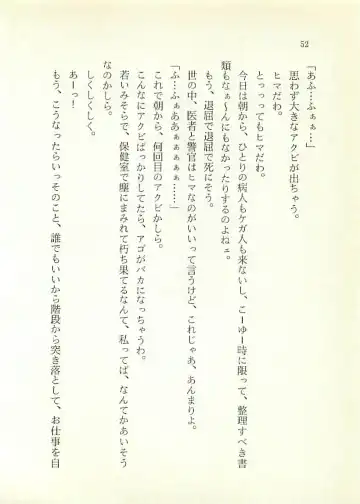 52
「あふ…ふぁぁ…」
思わず大きなアクビが出ちゃう。
ヒマだわ。
とっっってもヒマだわ。
今日は朝から、ひとりの病人もケガ人も来ないし、こーゆー時に限って、整理すべき書
類もなぁ〜んにもなかったりするのよねェ。
もう、退屈で退屈で死にそう。
世の中、医者と警官はヒマなのがいいって言うけど、これじゃあ、あんまりよ。
「ふ…ふぁああぁぁぁぁぁ……」
これで朝から、何回目のアクビかしら。
こんなにアクビばっかりしてたら、アゴがバカになっちゃうわ。
若いみそらで、保健室で塵にまみれて朽ち果てるなんて、私ってば、なんてかあいそう
なのかしら。
しくしくしく。
あーっ！
もう、こうなったらいっそのこと、誰でもいいから階段から突き落として、お仕事を自